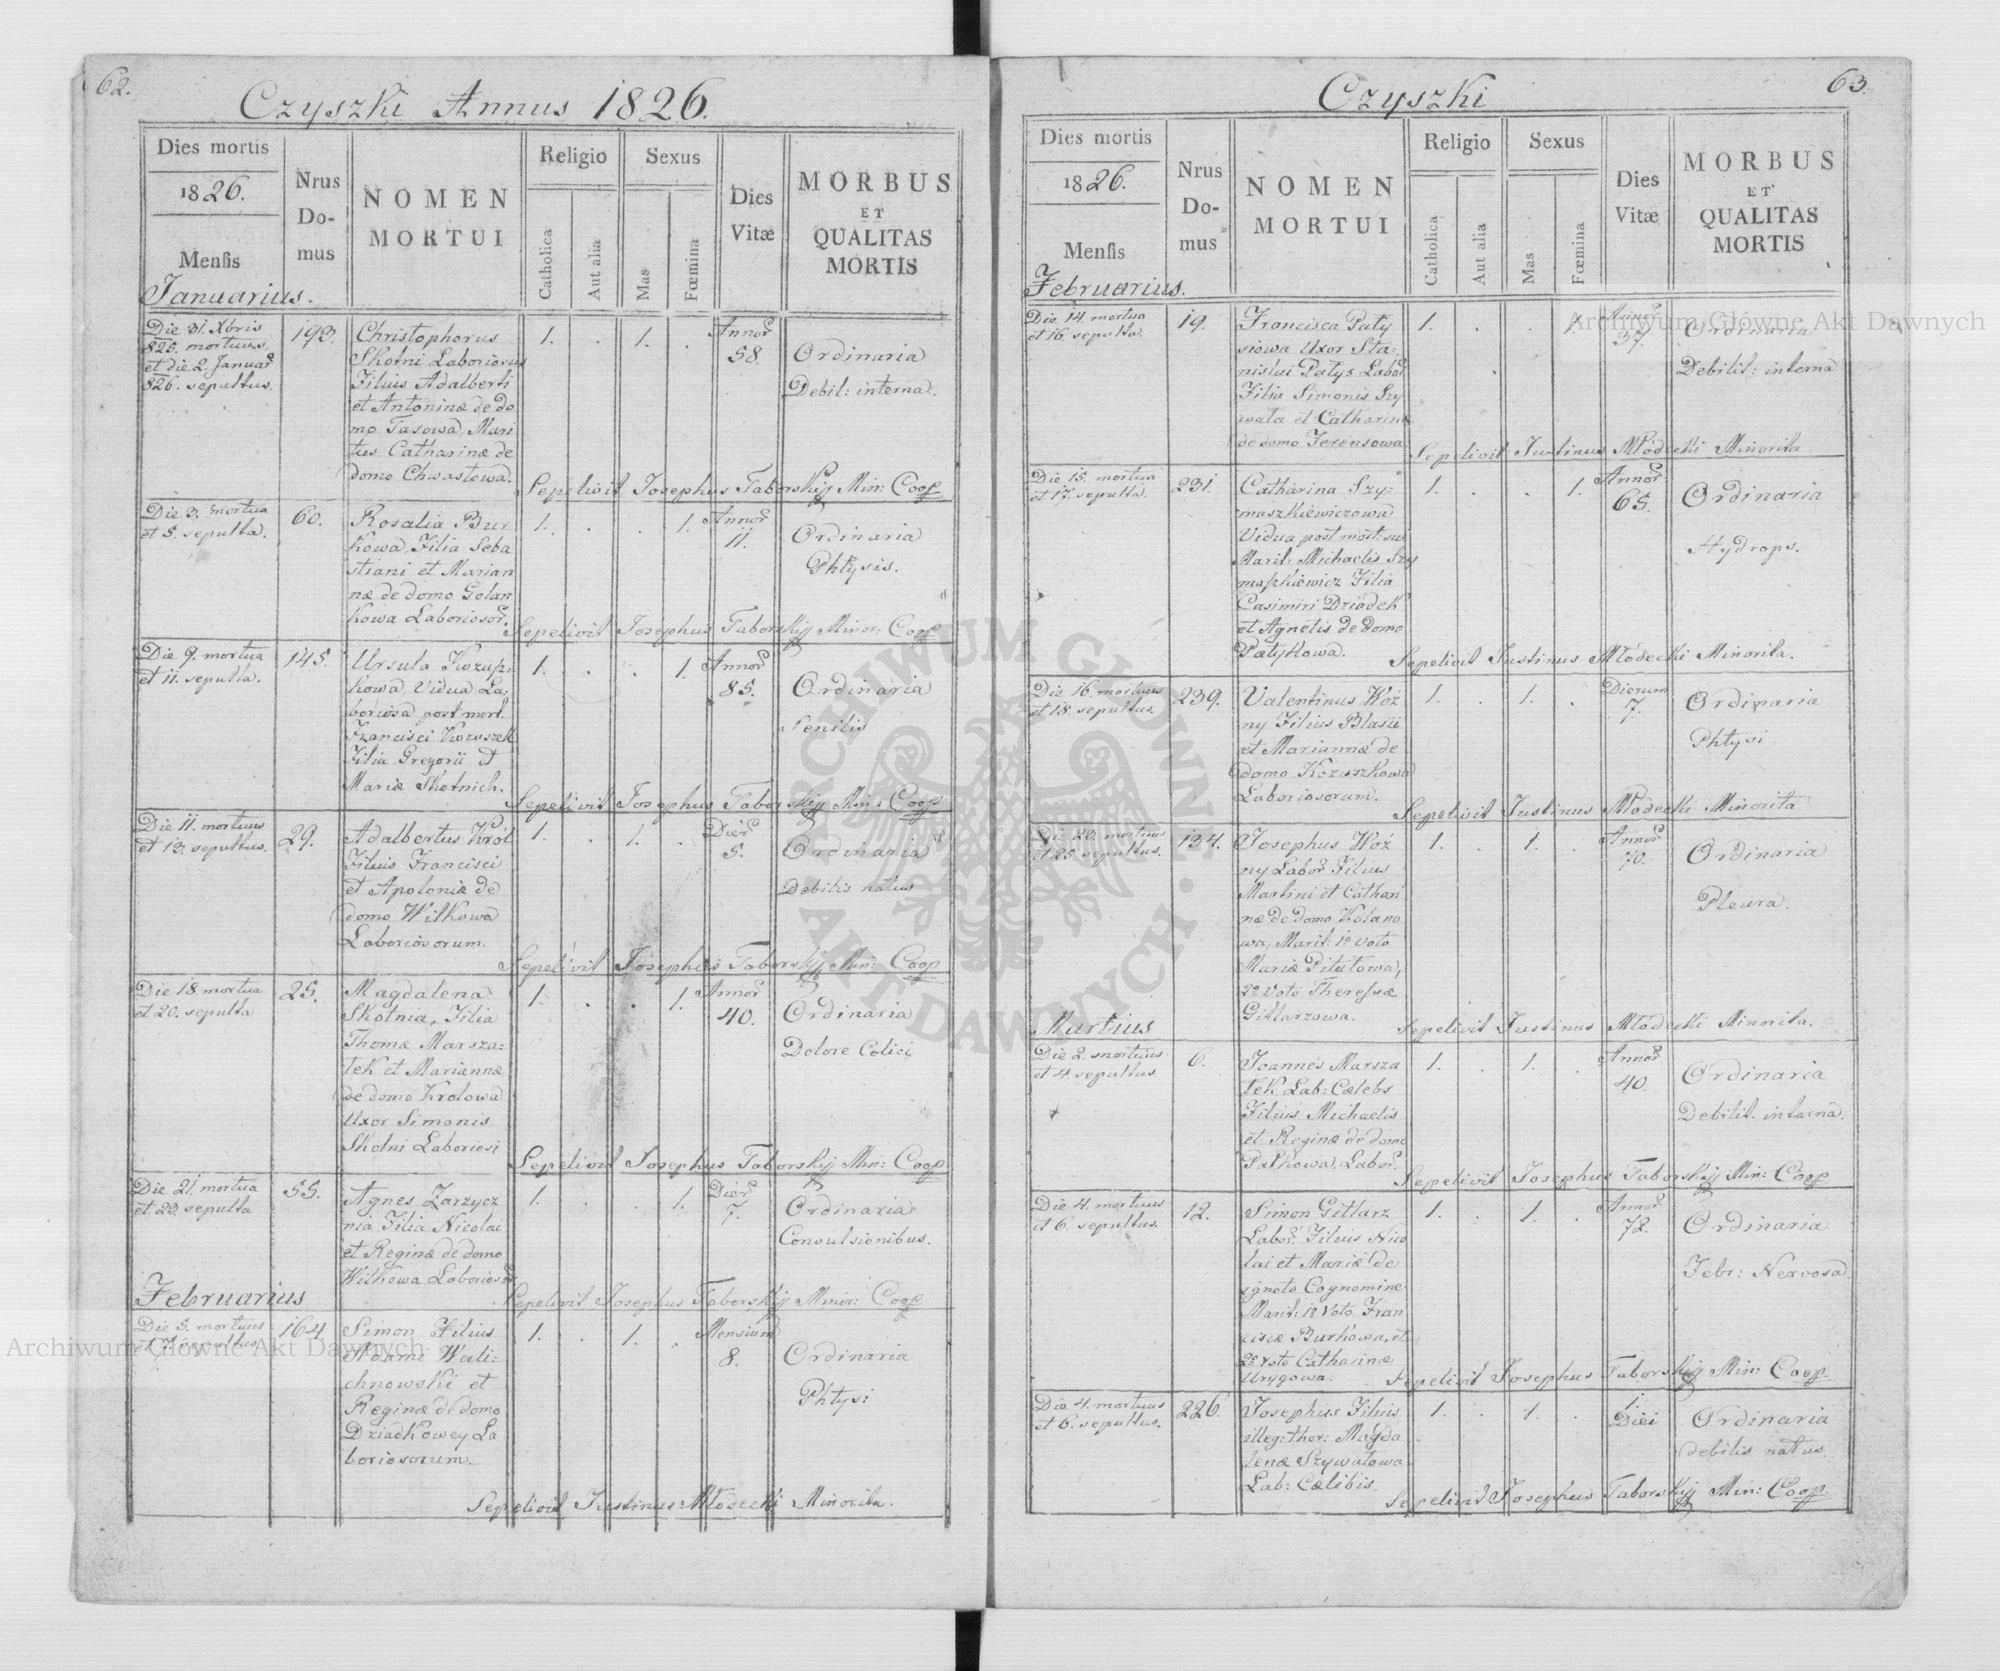 62.
Czyszki Annus 1826.
Dies mortis
1826.
Mensis
Januarius.
Nrus
Do-
mus
NOMEN
MORTUI
Religio
Catholica
Aut alia
Sexus
Mas
Fœmina
Dies
Vitæ
MORBUS
ET
QUALITAS
MORTIS
Die 31. Xbris
825. mortuus,
et die 2. Januar
826. sepultus.
193.
Christophorus
Skotni Laboriosus
Filius Adalberti
et Antoninæ de do
mo Tasowa, Mari
tus Catharinæ de
domo Chwastowa.
1. . 1. .
Annor
58.
Ordinaria
Debil: interna.
Sepelivit Josephus Taborskij Min: Coop
Die 3. mortua
et 5. sepulta.
60.
Rosalia Bur
kowa, Filia Seba
stiani et Marian
næ de domo Golan
kowa Laboriosor.
1. . . 1.
Annor
11.
Ordinaria
Phtysis.
Sepelivit Josephus Taborskij Minor: Coop
Die 9. mortua
et 11. sepulta.
145.
Ursula Kozusz:
kowa Vidua La:
boriosa post mort.
Francisci Kozuszek
Filia Gregorii et
Mariæ Skotnich.
1. . . 1.
Annor
85.
Ordinaria
Senilis
Sepelivit Josephus Taborskij Min: Coop
Die 11. mortuus
et 13. sepultus.
29.
Adalbertus Krol
Filius Francisci
et Apoloniæ de
domo Witkowa
Laboriosorum.
1. . 1. .
Dier
5.
Ordinaria
Debilis natus
Sepelivit Josephus Taborskij Min: Coop
Die 18. mortua
et 20. sepulta
25.
Magdalena
Skotnia, Filia
Thomæ Marsza:
łek et Mariannæ
de domo Krolowa
Uxor Simonis
Skotni Laboriosi
1. . . 1.
Annor
40.
Ordinaria
Dolore Colici
Sepelivit Josephus Taborskij Min: Coop
Die 21. mortua
et 23. sepulta
55.
Agnes Zarzycz
nia Filia Nicolai
et Reginæ de domo
Witkowa Laboriosor
1. . . 1.
Dier
7.
Ordinaria
Convulsionibus.
Sepelivit Josephus Taborskij Minor: Coop
Februarius
Die 5. mortuus
et 7. sepultus
164
Simon Filius
Adami Wali:
chnowski et
Reginæ de domo
Dziadkowey La
boriosorum.
1. . 1. .
Mensium
8.
Ordinaria
Phtysi
Sepelivit Justinus Młodecki Minorita.
63.
Czyszki
Dies mortis
1826.
Mensis
Februarius.
Nrus
Do-
mus
NOMEN
MORTUI
Religio
Catholica
Aut alia
Sexus
Mas
Fœmina
Dies
Vitæ
MORBUS
ET
QUALITAS
MORTIS
Die 14. mortua
et 16. sepulta.
19.
Francisca Paty
siowa Uxor Sta:
nislai Patys Labor
Filia Simonis Szy
wała et Catharinæ
de domo Jerensowa
1. . . 1.
Annor
37.
Ordinaria
Debilit: interna
Sepelivit Justinus Młodecki Minorita
Die 15. mortua
et 17. sepulta.
231.
Catharina Szy:
maszkiewiczowa
Vidua post mort: sui
Marit: Michaelis Szy
maszkiewicz Filia
Casimiri Dziadek
et Agnetis de domo
Patykowa.
1. . . 1.
Annor
65.
Ordinaria
Hydrops.
Sepelivit Justinus Młodecki Minorita.
Die 16. mortuus
et 18. sepultus.
239.
Valentinus Woź
ny Filius Blasii
et Mariannæ de
domo Kozuszkowa
Laboriosorum.
1. . 1. .
Dierum
7.
Ordinaria
Phtysi
Sepelivit Justinus Młodecki Minorita
Die 23. mortuus
et 25. sepultus.
134.
Josephus Woź
ny Labor. Filius
Martini et Cathari
næ de domo Kolano
wa, Marit: 1o voto
Mariæ Pitułowa,
2o Voto Theressæ
Gitlarzowa.
1. . 1. .
Annor
70.
Ordinaria
Pleura.
Sepelivit Justinus Młodecki Minorita.
Martius
Die 2. mortuus
et 4 sepultus.
6.
Joannes Marsza
łek Lab: Cælebs
Filius Michaelis
et Reginæ de domo
Pałkowa Labor.
1. . 1. .
Annor
40.
Ordinaria
Debilit. interna.
Sepelivit Josephus Taborskij Min: Coop
Die 4. mortuus
et 6. sepultus.
12.
Simon Gitlarz
Labor. Filius Nico
lai et Mariæ de
ignoto Cognomine
Marit: 1o Voto Fran
ciscæ Burkowa, et
2o Voto Catharinæ
Urygowa.
1. . 1. .
Annor
72.
Ordinaria
Febr: Nervosa
Sepelivit Josephus Taborskij Min: Coop
Die 4. mortuus
et 6. sepultus.
226.
Josephus Filius
illeg: thor: Magda
lenæ Szywałowa
Lab: Cælibis.
1. . 1. .
1.
Diei
Ordinaria
debilis natus
Sepelivit Josephus Taborskij Min: Coop
Archiwum Główne Akt Dawnych
Archiwum Główne Akt Dawnych
ARCHIWUM GŁÓWNE · AKT DAWNYCH ·